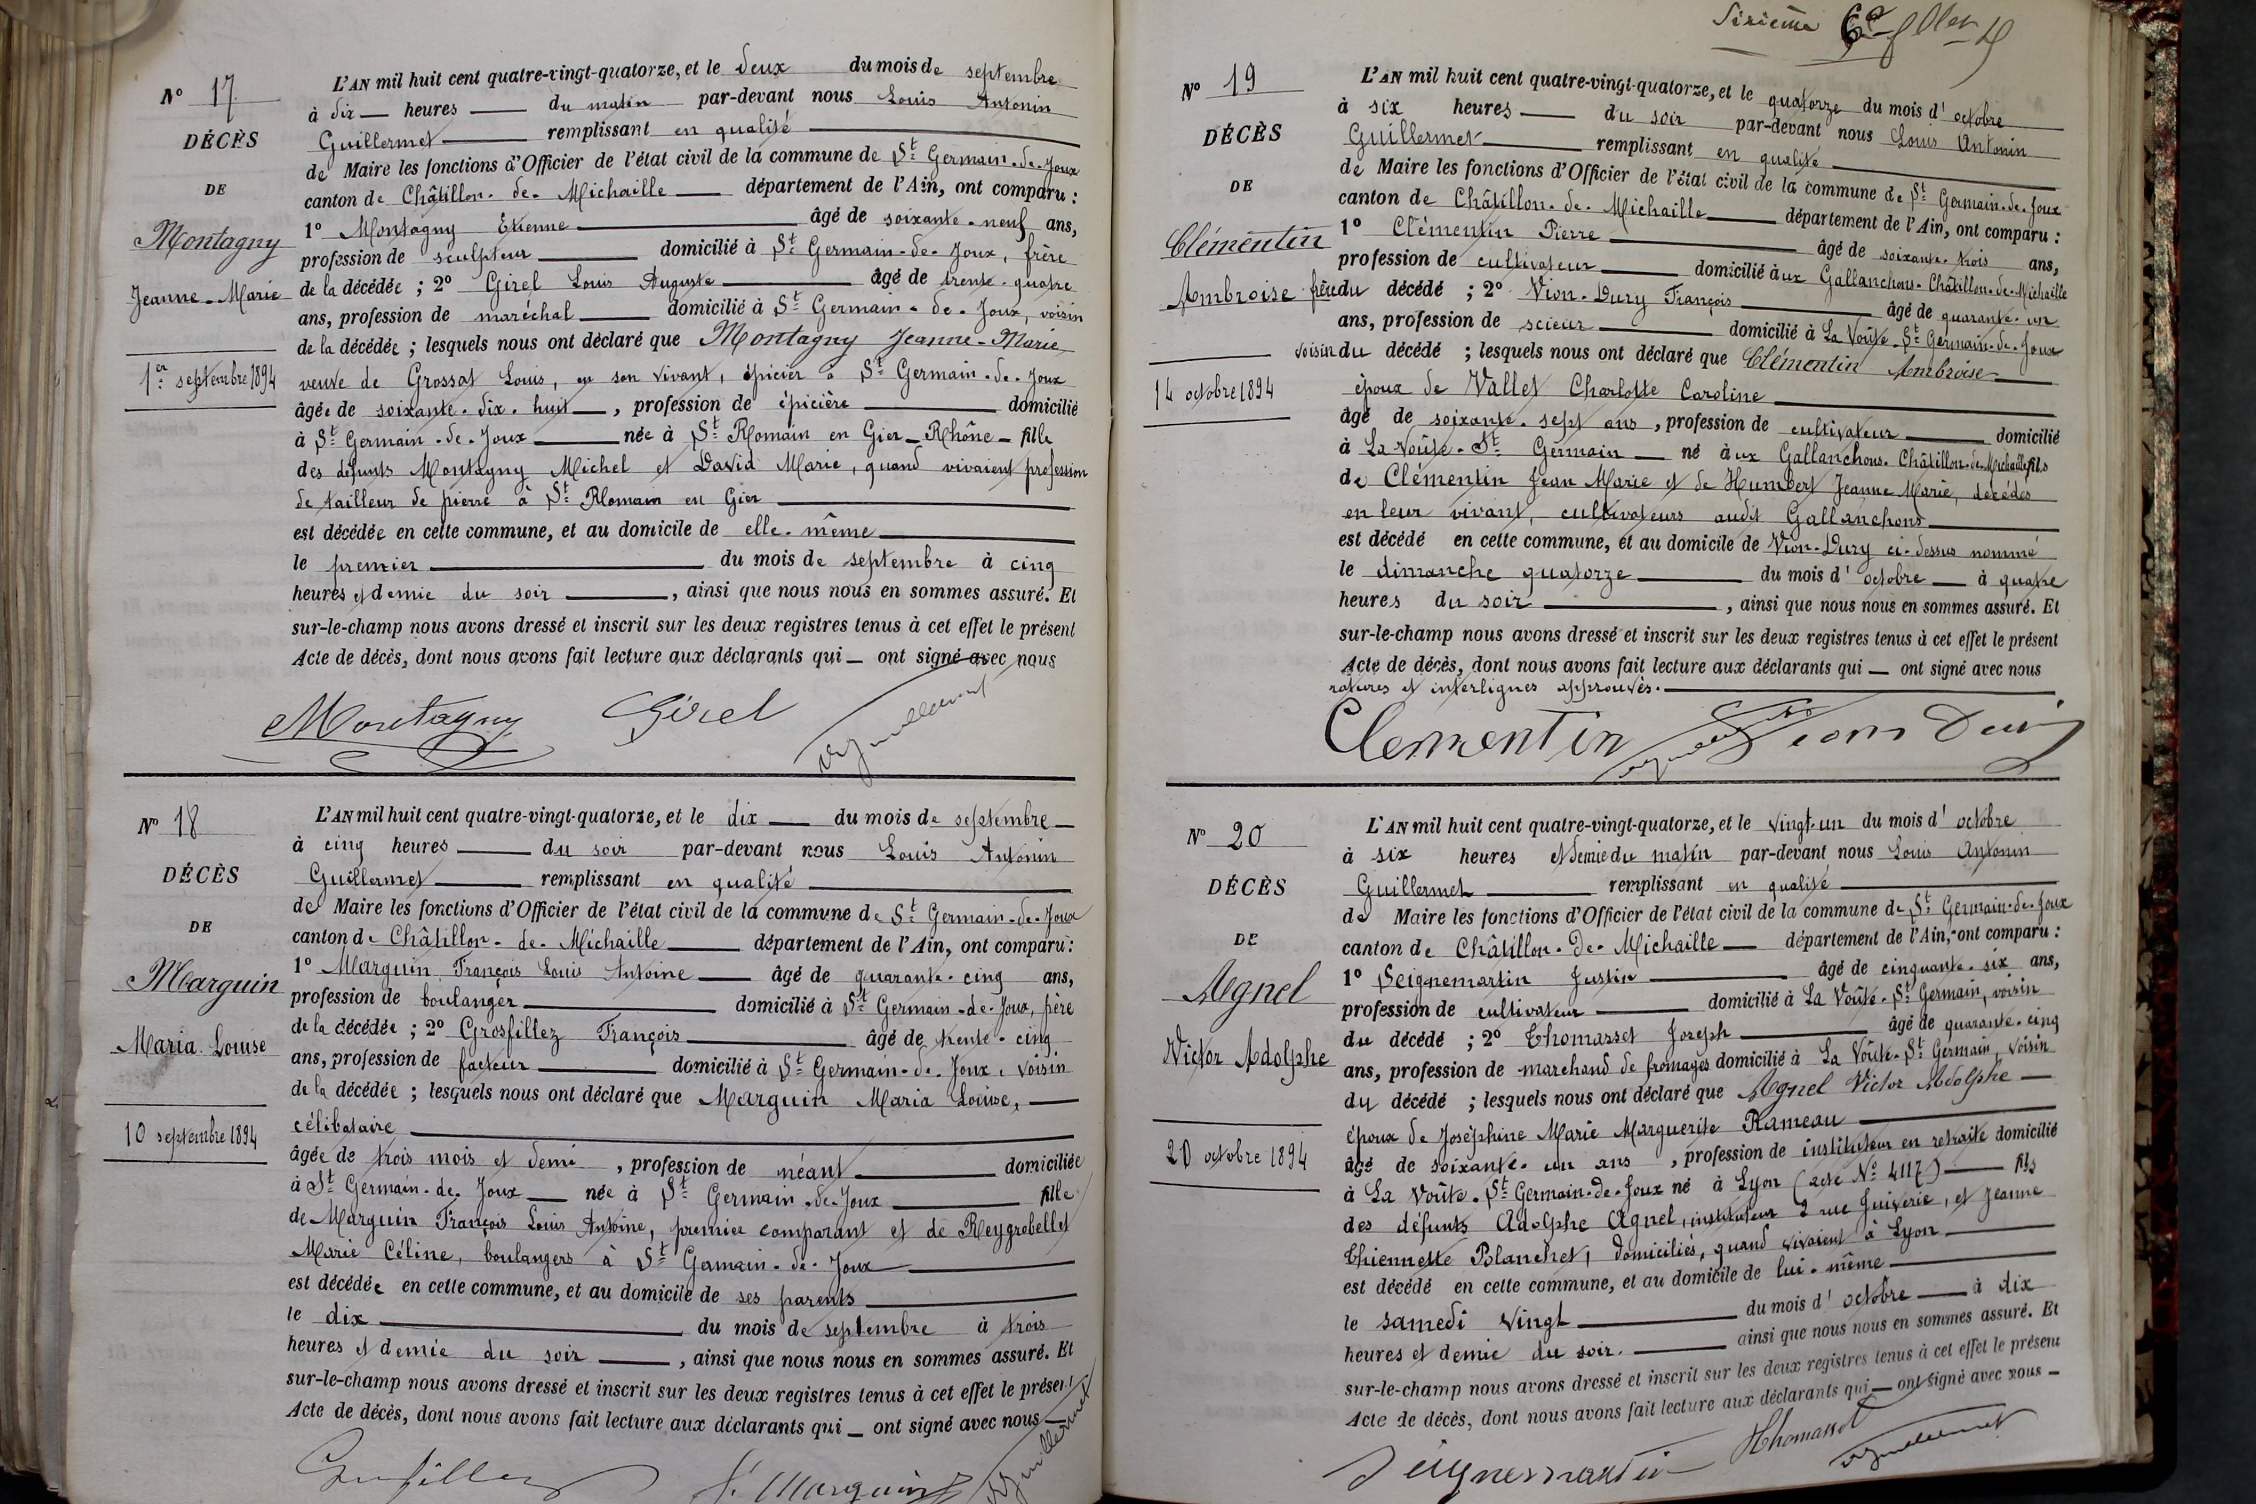 N° 17
DÉCÈS
DE
Montagny
Jeanne-Marie
1er septembre 1894
L'AN mil huit cent quatre-vingt-quatorze, et le deux du mois de septembre
à dix heures du matin par-devant nous Louis Antonin
Guillermet remplissant en qualité
de Maire les fonctions d'Officier de l'état civil de la commune de St Germain-de-Joux
canton de Châtillon-de-Michaille département de l'Ain, ont comparu :
1° Montagny Etienne âgé de soixante-neuf ans,
profession de sculpteur domicilié à St Germain-de-Joux, frère
de la décédée ; 2° Girel Louis Auguste âgé de trente-quatre
ans, profession de maréchal domicilié à St Germain-de-Joux, voisin
de la décédée ; lesquels nous ont déclaré que Montagny Jeanne-Marie
veuve de Grossat Louis, en son vivant, épicier à St Germain-de-Joux
âgée de soixante-dix-huit, profession de épicière domicilié
à St Germain-de-Joux née à St Romain en Gier-Rhône-fille
des défunts Montagny Michel et David Marie, quand vivaient profession
de tailleur de pierre à St Romain en Gier
est décédée en cette commune, et au domicile de elle-même
le premier du mois de septembre à cinq
heures et demie du soir, ainsi que nous nous en sommes assuré. Et
sur-le-champ nous avons dressé et inscrit sur les deux registres tenus à cet effet le présent
Acte de décès, dont nous avons fait lecture aux déclarants qui — ont signé avec nous
Montagny Girel Guillermet
N° 18
DÉCÈS
DE
Marguin
Maria Louise
10 septembre 1894
L'AN mil huit cent quatre-vingt-quatorze, et le dix du mois de septembre
à cinq heures du soir par-devant nous Louis Antonin
Guillermet remplissant en qualité
de Maire les fonctions d'Officier de l'état civil de la commune de St Germain-de-Joux
canton de Châtillon-de-Michaille département de l'Ain, ont comparu :
1° Marguin François Louis Antoine âgé de quarante-cinq ans,
profession de boulanger domicilié à St Germain-de-Joux, père
de la décédée ; 2° Grosfillez François âgé de trente-cinq
ans, profession de facteur domicilié à St Germain-de-Joux, voisin
de la décédée ; lesquels nous ont déclaré que Marguin Maria Louise,
célibataire
âgée de trois mois et demi, profession de néant domiciliée
à St Germain-de-Joux née à St Germain-de-Joux fille
de Marguin François Louis Antoine, premier comparant et de Reygrobellet
Marie Céline, boulangers à St Germain-de-Joux
est décédée en cette commune, et au domicile de ses parents
le dix du mois de septembre à trois
heures et demie du soir, ainsi que nous nous en sommes assuré. Et
sur-le-champ nous avons dressé et inscrit sur les deux registres tenus à cet effet le présent
Acte de décès, dont nous avons fait lecture aux déclarants qui — ont signé avec nous
Marguin Guillermet
Sixième
N° 19
DÉCÈS
DE
Clémentin
Ambroise
14 octobre 1894
L'AN mil huit cent quatre-vingt-quatorze, et le quatorze du mois d'octobre
à six heures du soir par-devant nous Louis Antonin
Guillermet remplissant en qualité
de Maire les fonctions d'Officier de l'état civil de la commune de St Germain-de-Joux
canton de Châtillon-de-Michaille département de l'Ain, ont comparu :
1° Clémentin Pierre âgé de soixante-trois ans,
profession de cultivateur domicilié aux Gallanchons-Châtillon-de-Michaille
frère du décédé ; 2° Vion-Dury François âgé de quarante-un
ans, profession de scieur domicilié à La Voûte-St Germain-de-Joux
voisin du décédé ; lesquels nous ont déclaré que Clémentin Ambroise
époux de Vallet Charlotte Caroline
âgé de soixante-sept ans, profession de cultivateur domicilié
à La Voûte-St Germain né aux Gallanchons-Châtillon-de-Michaille fils
de Clémentin Jean Marie et de Humbert Jeanne Marie, décédés
en leur vivant, cultivateurs audit Gallanchons
est décédé en cette commune, et au domicile de Vion-Dury ci-dessus nommé
le dimanche quatorze du mois d'octobre à quatre
heures du soir, ainsi que nous nous en sommes assuré. Et
sur-le-champ nous avons dressé et inscrit sur les deux registres tenus à cet effet le présent
Acte de décès, dont nous avons fait lecture aux déclarants qui — ont signé avec nous
ratures et interlignes approuvés.
Clementin
N° 20
DÉCÈS
DE
Agnel
Victor Adolphe
20 octobre 1894
L'AN mil huit cent quatre-vingt-quatorze, et le vingt-un du mois d'octobre
à six heures et demie du matin par-devant nous Louis Antonin
Guillermet remplissant en qualité
de Maire les fonctions d'Officier de l'état civil de la commune de St Germain-de-Joux
canton de Châtillon-de-Michaille département de l'Ain, ont comparu :
1° Seignemartin Justin âgé de cinquante-six ans,
profession de cultivateur domicilié à La Voûte-St Germain, voisin
du décédé ; 2° Thomasset Joseph âgé de quarante-cinq
ans, profession de marchand de fromages domicilié à La Voûte-St Germain, voisin
du décédé ; lesquels nous ont déclaré que Agnel Victor Adolphe
époux de Joséphine Marie Marguerite Rameau
âgé de soixante-un ans, profession de instituteur en retraite domicilié
à La Voûte-St Germain-de-Joux né à Lyon (acte N° 4117) fils
des défunts Adolphe Agnel, instituteur 2 rue Juiverie, et Jeanne
Thiennette Blanchet, domiciliés, quand vivaient à Lyon
est décédé en cette commune, et au domicile de lui-même
le samedi vingt du mois d'octobre à dix
heures et demie du soir. ainsi que nous nous en sommes assuré. Et
sur-le-champ nous avons dressé et inscrit sur les deux registres tenus à cet effet le présent
Acte de décès, dont nous avons fait lecture aux déclarants qui — ont signé avec nous —
Seignemartin Thomasset Guillermet